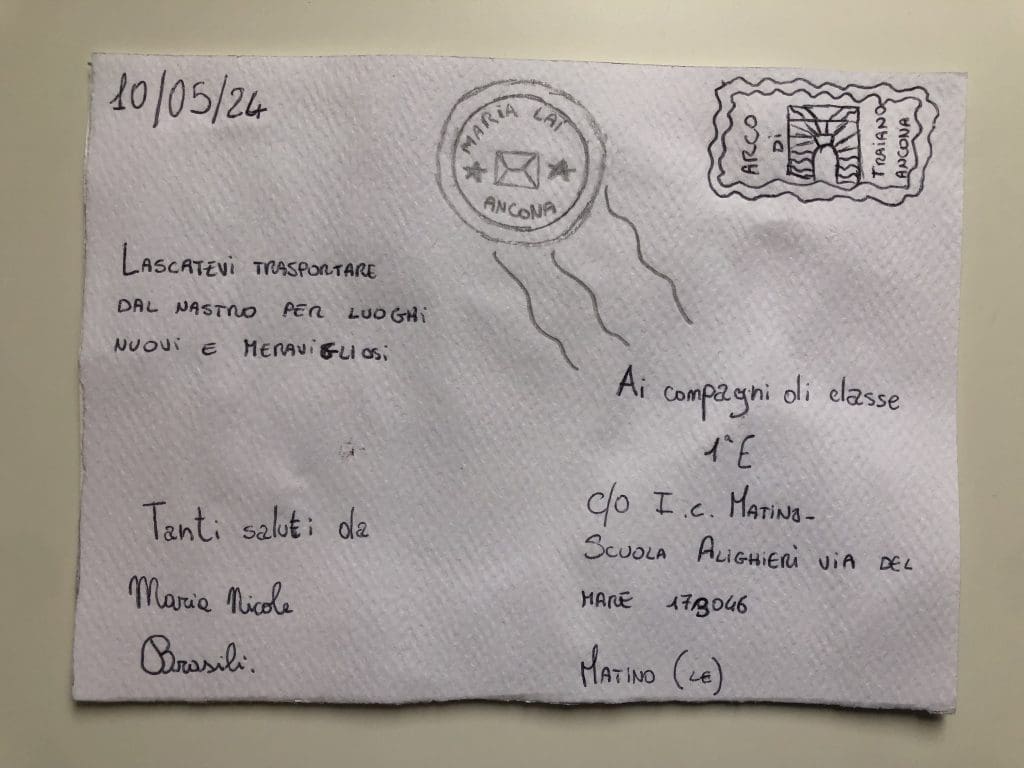 10/05/24
MARIA LAI
ANCONA
ARCO
DI
TRAIANO
ANCONA
LASCATEVI TRASPORTARE
DAL NASTRO PER LUOGHI
NUOVI E MERAVIGLIOSI
Tanti saluti da
Maria Nicole
Brasili.
Ai compagni di classe
1ª E
c/o I.C. MATINO-
SCUOLA ALIGHIERI VIA DEL
MARE 1773046
MATINO (LE)